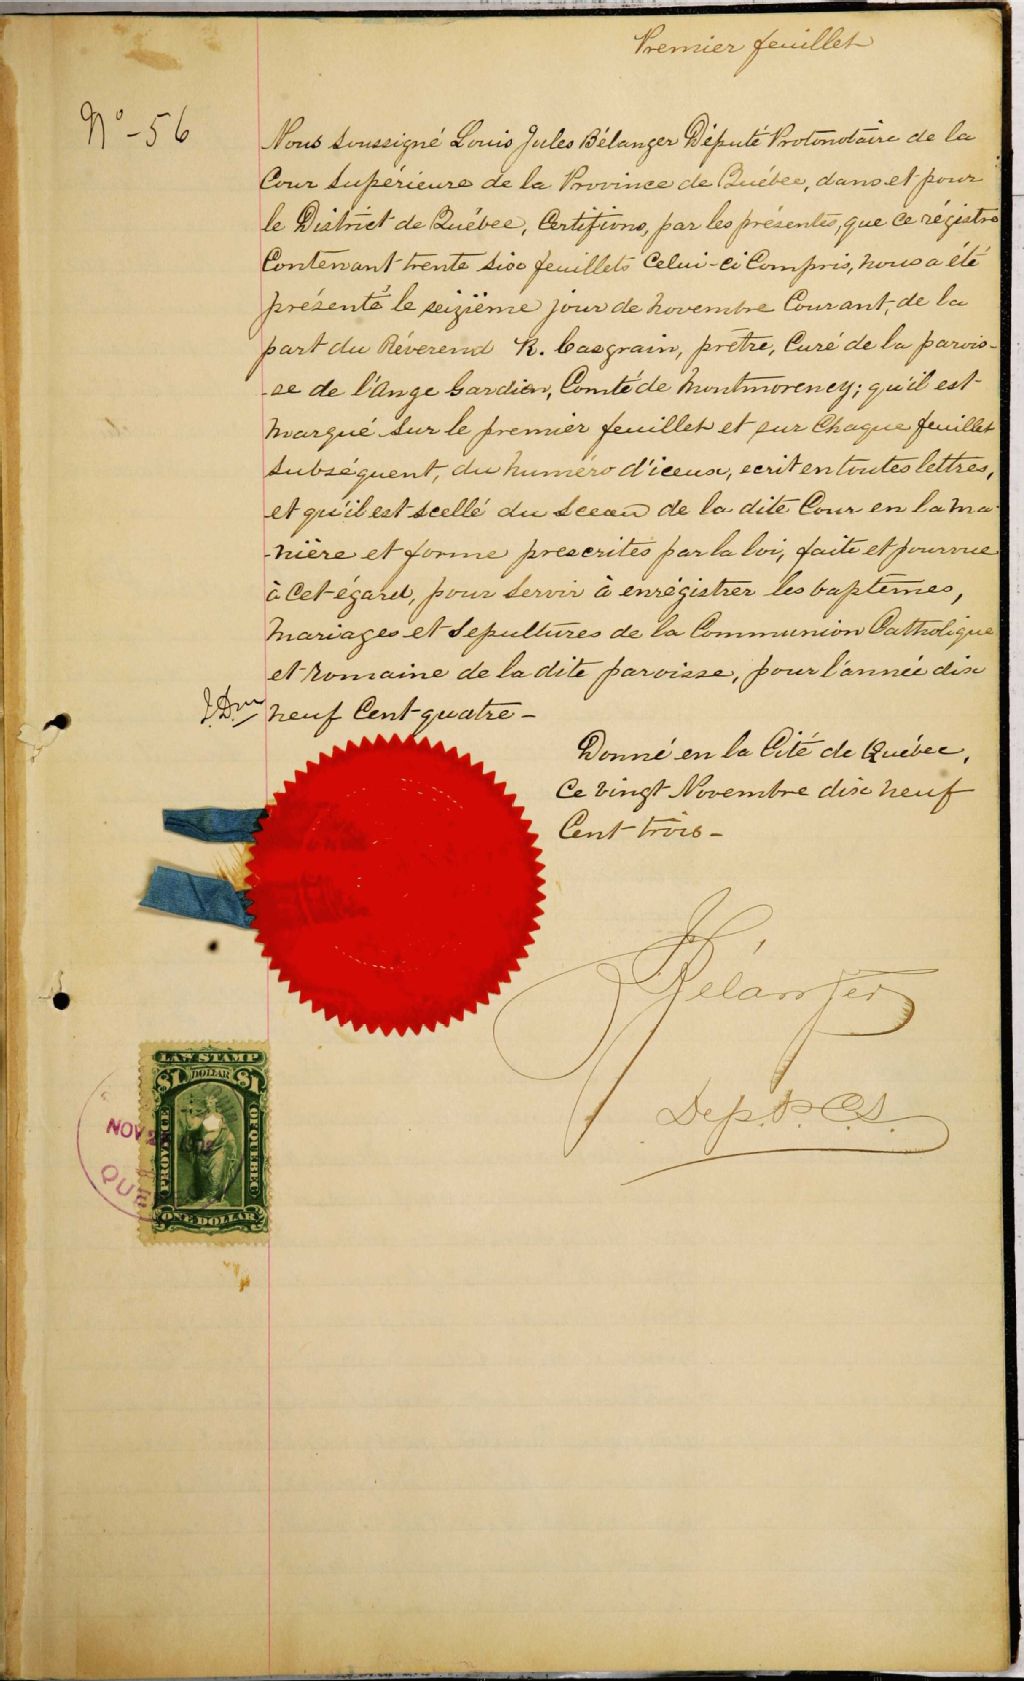 Premier feuillet
No - 56
Nous soussigné Louis Jules Bélanger Député Protonotaire de la
Cour Supérieure de la Province de Québec, dans et pour
le District de Québec, Certifions, par les présentes, que ce régistre
Contenant trente six feuillets celui-ci Compris, nous a été
présenté le seizième jour de novembre Courant, de la
part du Révérend R. Casgrain, prêtre, Curé de la parois-
-se de l'Ange Gardien, Comté de Montmorency; qu'il est
marqué sur le premier feuillet et sur chaque feuillet
subséquent, du numéro d'iceux, ecrit en toutes lettres,
et qu'il est scellé du sceau de la dite Cour en la ma-
-nière et forme prescrites par la loi, faite et pourvue
à cet égard, pour servir à enrégistrer les baptêmes,
mariages et sepultures de la Communion Catholique
et romaine de la dite paroisse, pour l'année dix
neuf Cent quatre -
Donné en la Cité de Québec,
ce vingt Novembre dix neuf
Cent trois -
Bélanger
Dep. P. C. S.
LAW STAMP
$1 DOLLAR $1
PROVINCE OF QUEBEC
ONE DOLLAR
NOV